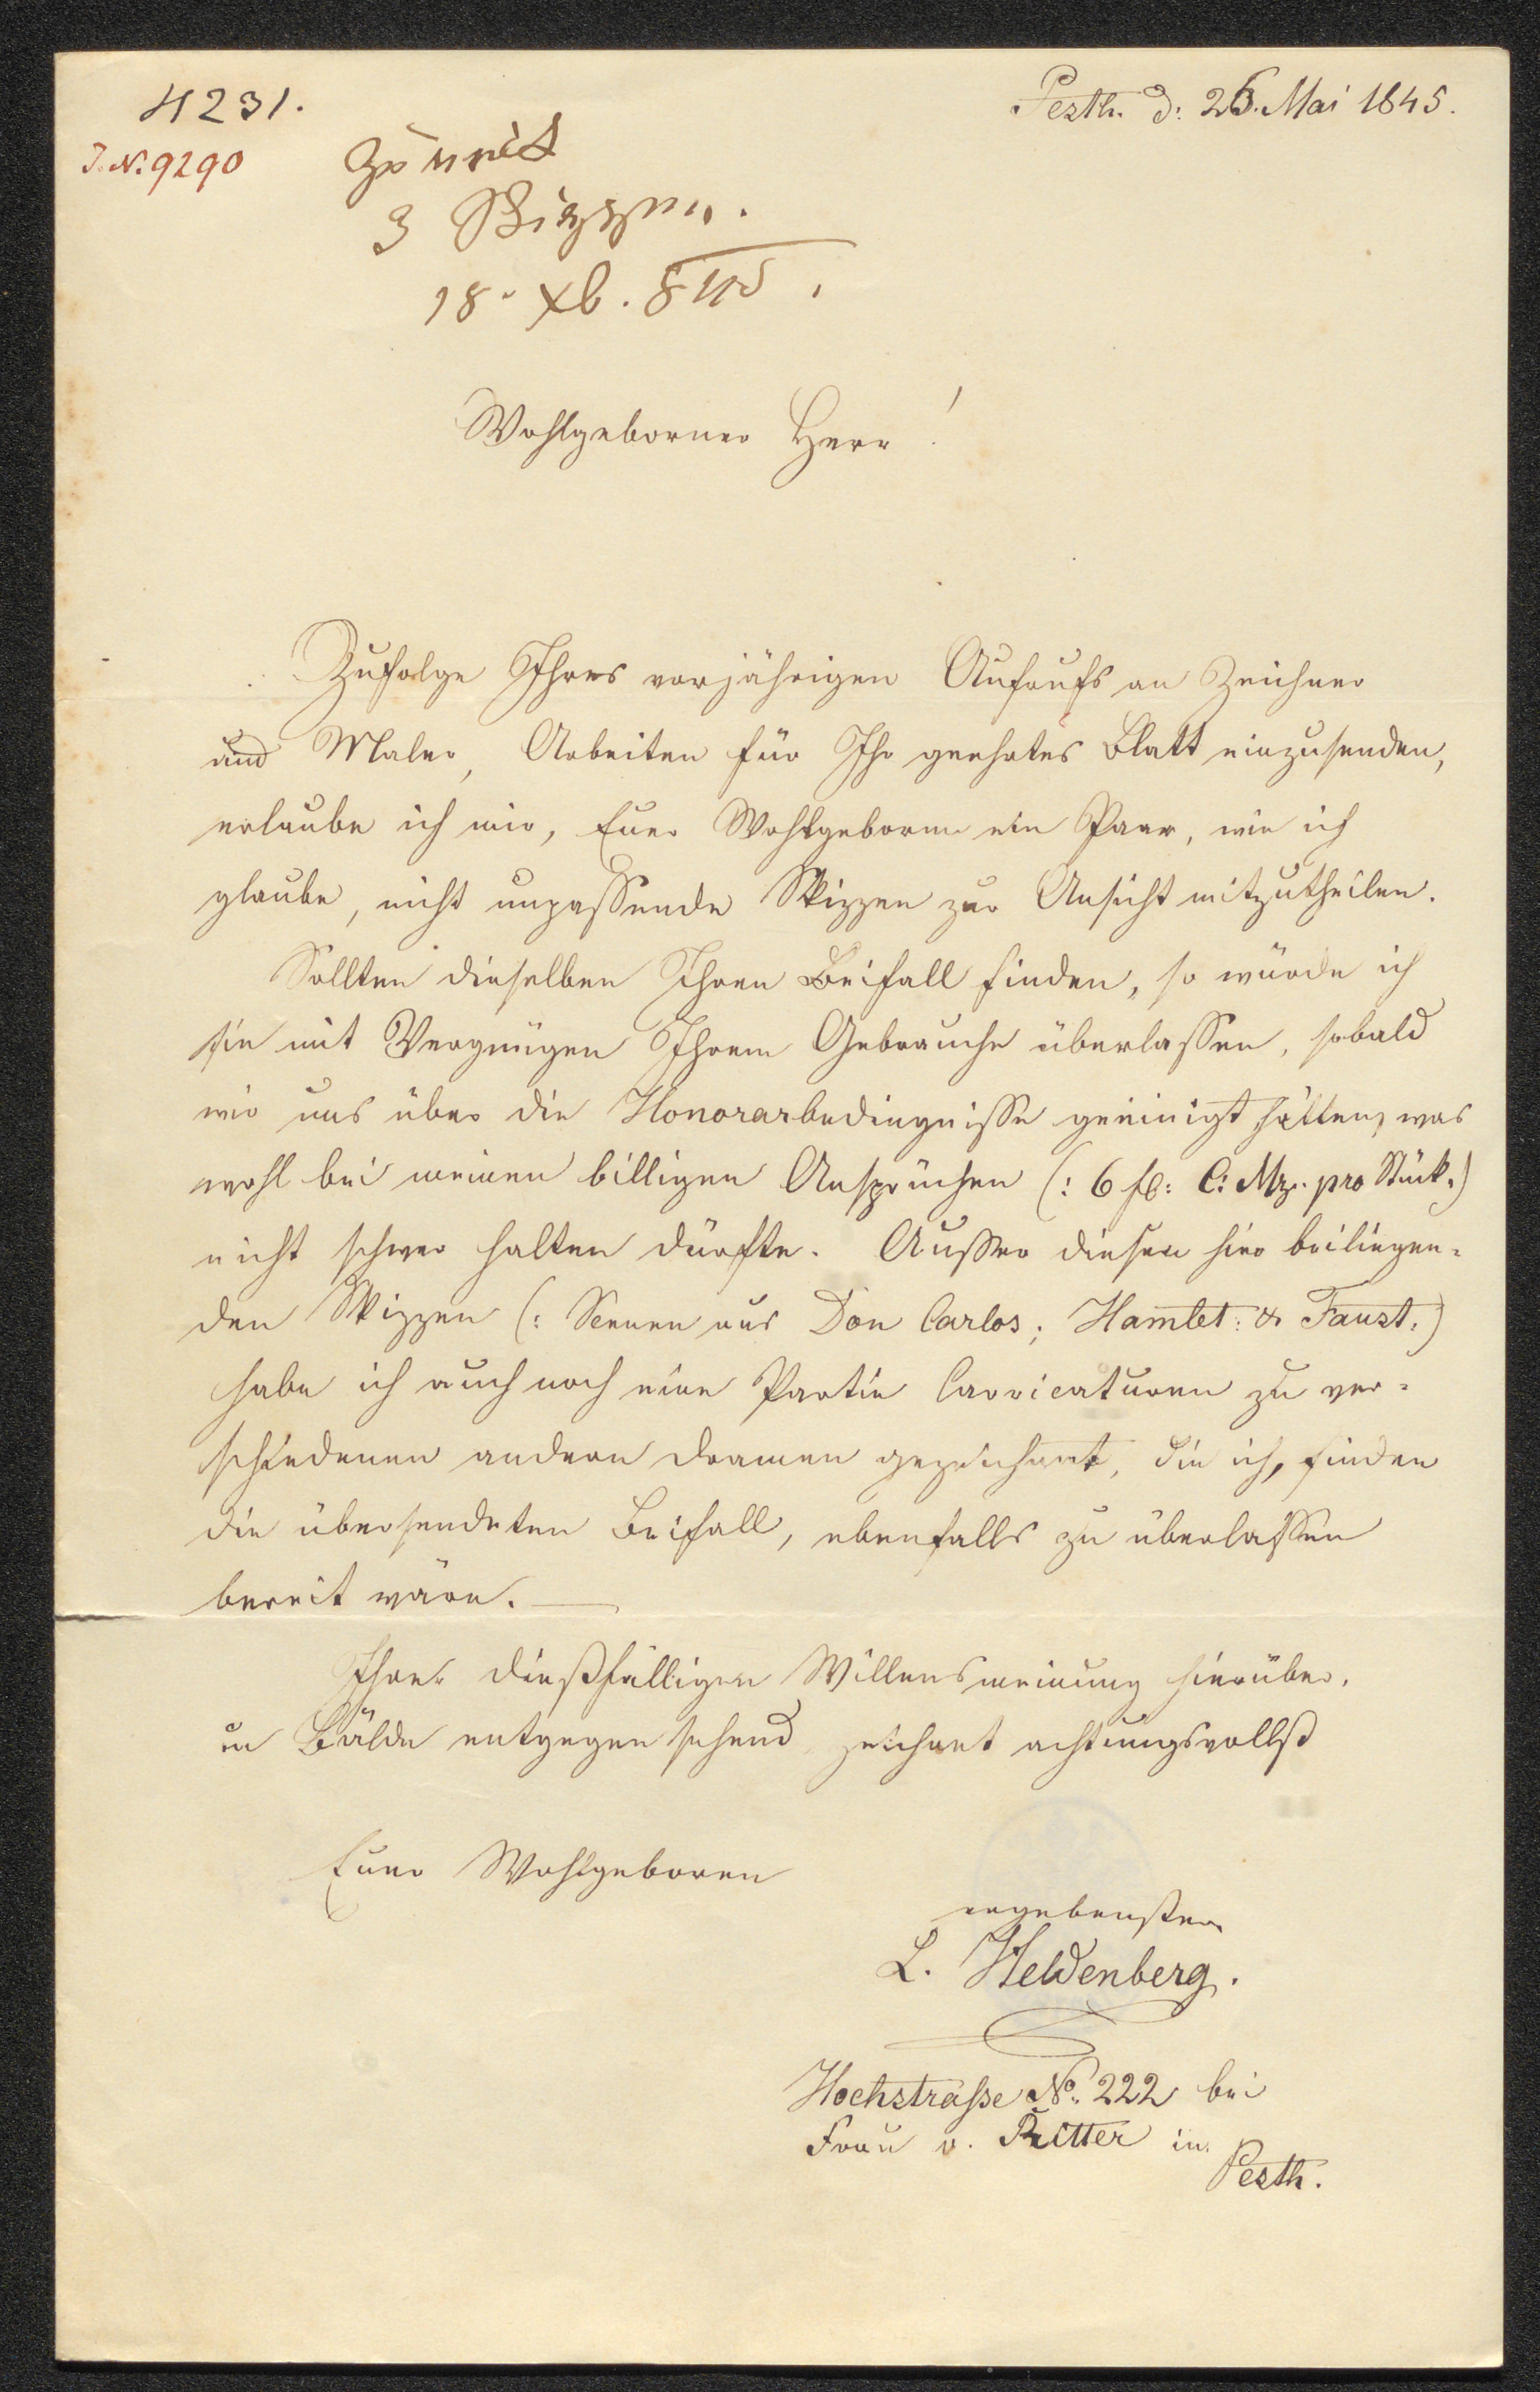 4231.
Pesth. d: 26. Mai 1845.
J.N. 9290
Zurück
3 Skizzen.
18. xb. 845.
Wohlgeborner Herr!
Zufolge Ihres vorjährigen Aufrufs an Zeichner
und Maler, Arbeiten für Ihr geehrtes Blatt einzusenden,
erlaube ich mir, Euer Wohlgeboren ein Paar, wie ich
glaube, nicht unpassende Skizzen zur Ansicht mitzutheilen.
Sollten dieselben Ihren Beifall finden, so würde ich
sie mit Vergnügen Ihrem Gebrauche überlassen, sobald
wir uns über die Honorarbedingnisse geeinigt hätten, was
wohl bei meinen billigen Ansprüchen (: 6 fl: C: Mz. pro Stück.)
nicht schwer halten dürfte. Ausser diesen hier beiliegen=
den Skizzen (: Scenen aus Don Carlos; Hamlet: & Faust.)
habe ich auch noch eine Partie Carricaturen zu ver=
schiedenen andern Dramen gezeichnet, die ich, finden
die übersendeten Beifall, ebenfalls zu überlassen
bereit wäre. —
Ihrer dießfälligen Willensmeinung hierüber,
in Bälde entgegen sehend, zeichnet achtungsvollst
Euer Wohlgeboren
ergebenster
L. Heldenberg.
Hochstraße No. 222 bei
Frau v. Ritter in
Pesth.